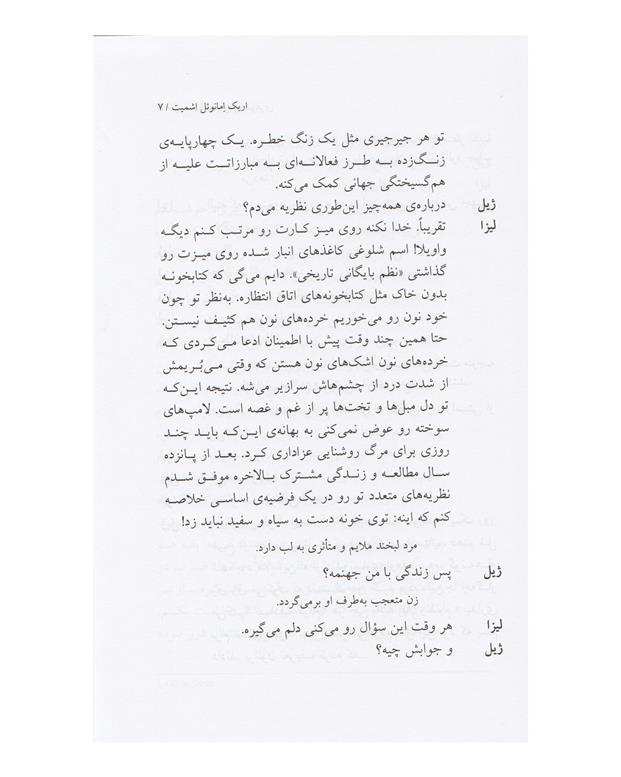 اریک امانوئل اشمیت / ۷
تو هر جیرجیری مثل یک زنگ خطره. یک چهارپایه‌ی
زنگ‌زده به طرز فعالانه‌ای به مبارزاتت علیه از
هم‌گسیختگی جهانی کمک می‌کنه.
ژیل درباره‌ی همه‌چیز این‌طوری نظریه می‌دم؟
لیزا تقریباً. خدا نکنه روی میز کارت رو مرتب کنم دیگه
واویلا! اسم شلوغی کاغذهای انبار شده روی میزت رو
گذاشتی «نظم بایگانی تاریخی». دایم می‌گی که کتابخونه
بدون خاک مثل کتابخونه‌های اتاق انتظاره. به‌نظر تو چون
خود نون رو می‌خوریم خرده‌های نون هم کثیف نیستن.
حتا همین چند وقت پیش با اطمینان ادعا می‌کردی که
خرده‌های نون اشک‌های نون هستن که وقتی می‌بُریمش
از شدت درد از چشم‌هاش سرازیر می‌شه. نتیجه این‌که
تو دل مبل‌ها و تخت‌ها پر از غم و غصه است. لامپ‌های
سوخته رو عوض نمی‌کنی به بهانه‌ی این‌که باید چند
روزی برای مرگ روشنایی عزاداری کرد. بعد از پانزده
سال مطالعه و زندگی مشترک بالاخره موفق شدم
نظریه‌های متعدد تو رو در یک فرضیه‌ی اساسی خلاصه
کنم که اینه: توی خونه دست به سیاه و سفید نباید زد!
مرد لبخند ملایم و متأثری به لب دارد.
ژیل پس زندگی با من جهنمه؟
زن متعجب به‌طرف او برمی‌گردد.
لیزا هر وقت این سؤال رو می‌کنی دلم می‌گیره.
ژیل و جوابش چیه؟